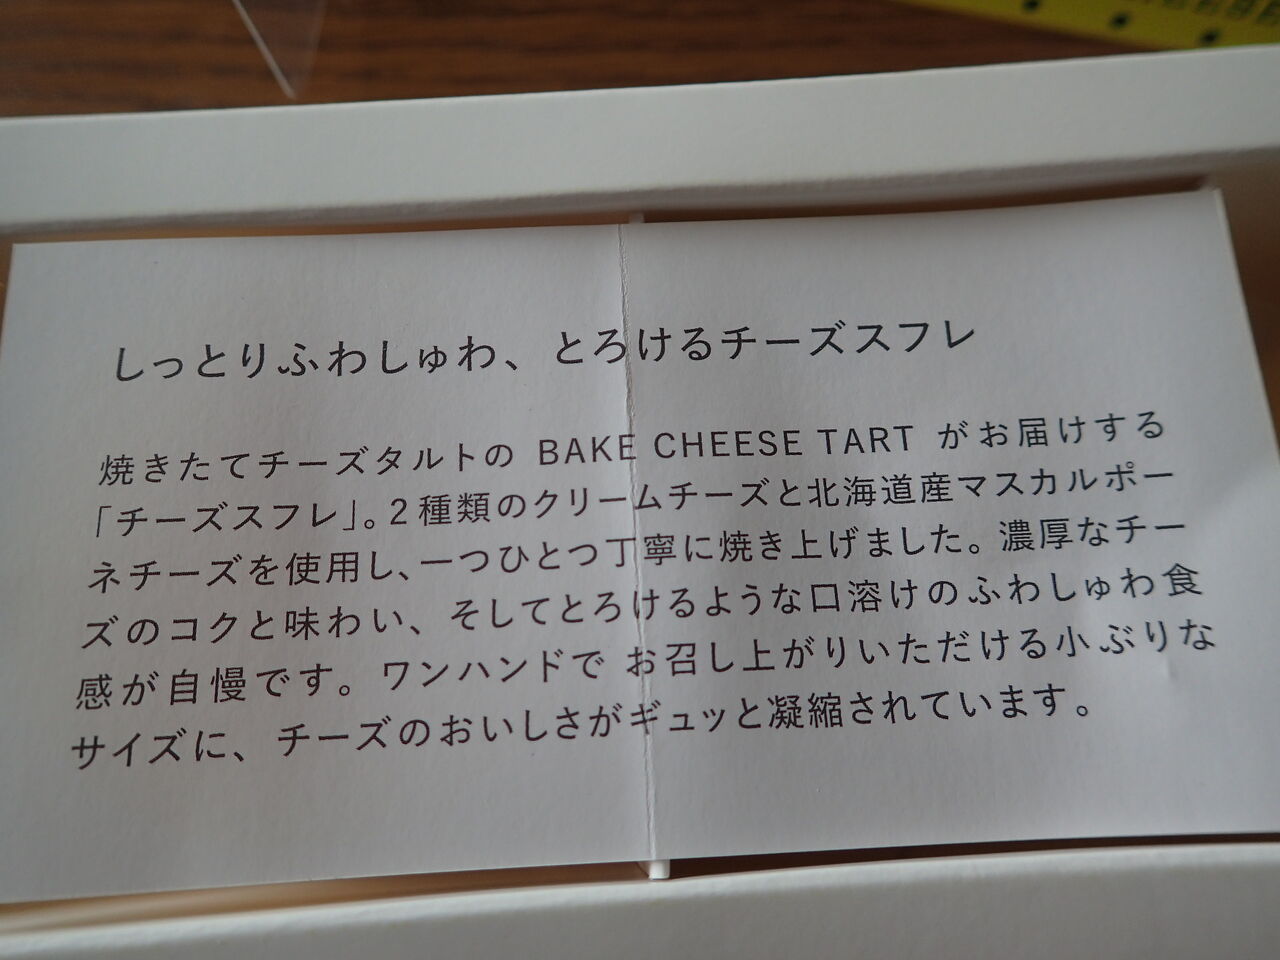 しっとりふわしゅわ、とろけるチーズスフレ
焼きたてチーズタルトの BAKE CHEESE TART がお届けする
「チーズスフレ」。2種類のクリームチーズと北海道産マスカルポー
ネチーズを使用し、一つひとつ丁寧に焼き上げました。濃厚なチー
ズのコクと味わい、そしてとろけるような口溶けのふわしゅわ食
感が自慢です。ワンハンドで お召し上がりいただける小ぶりな
サイズに、チーズのおいしさがギュッと凝縮されています。